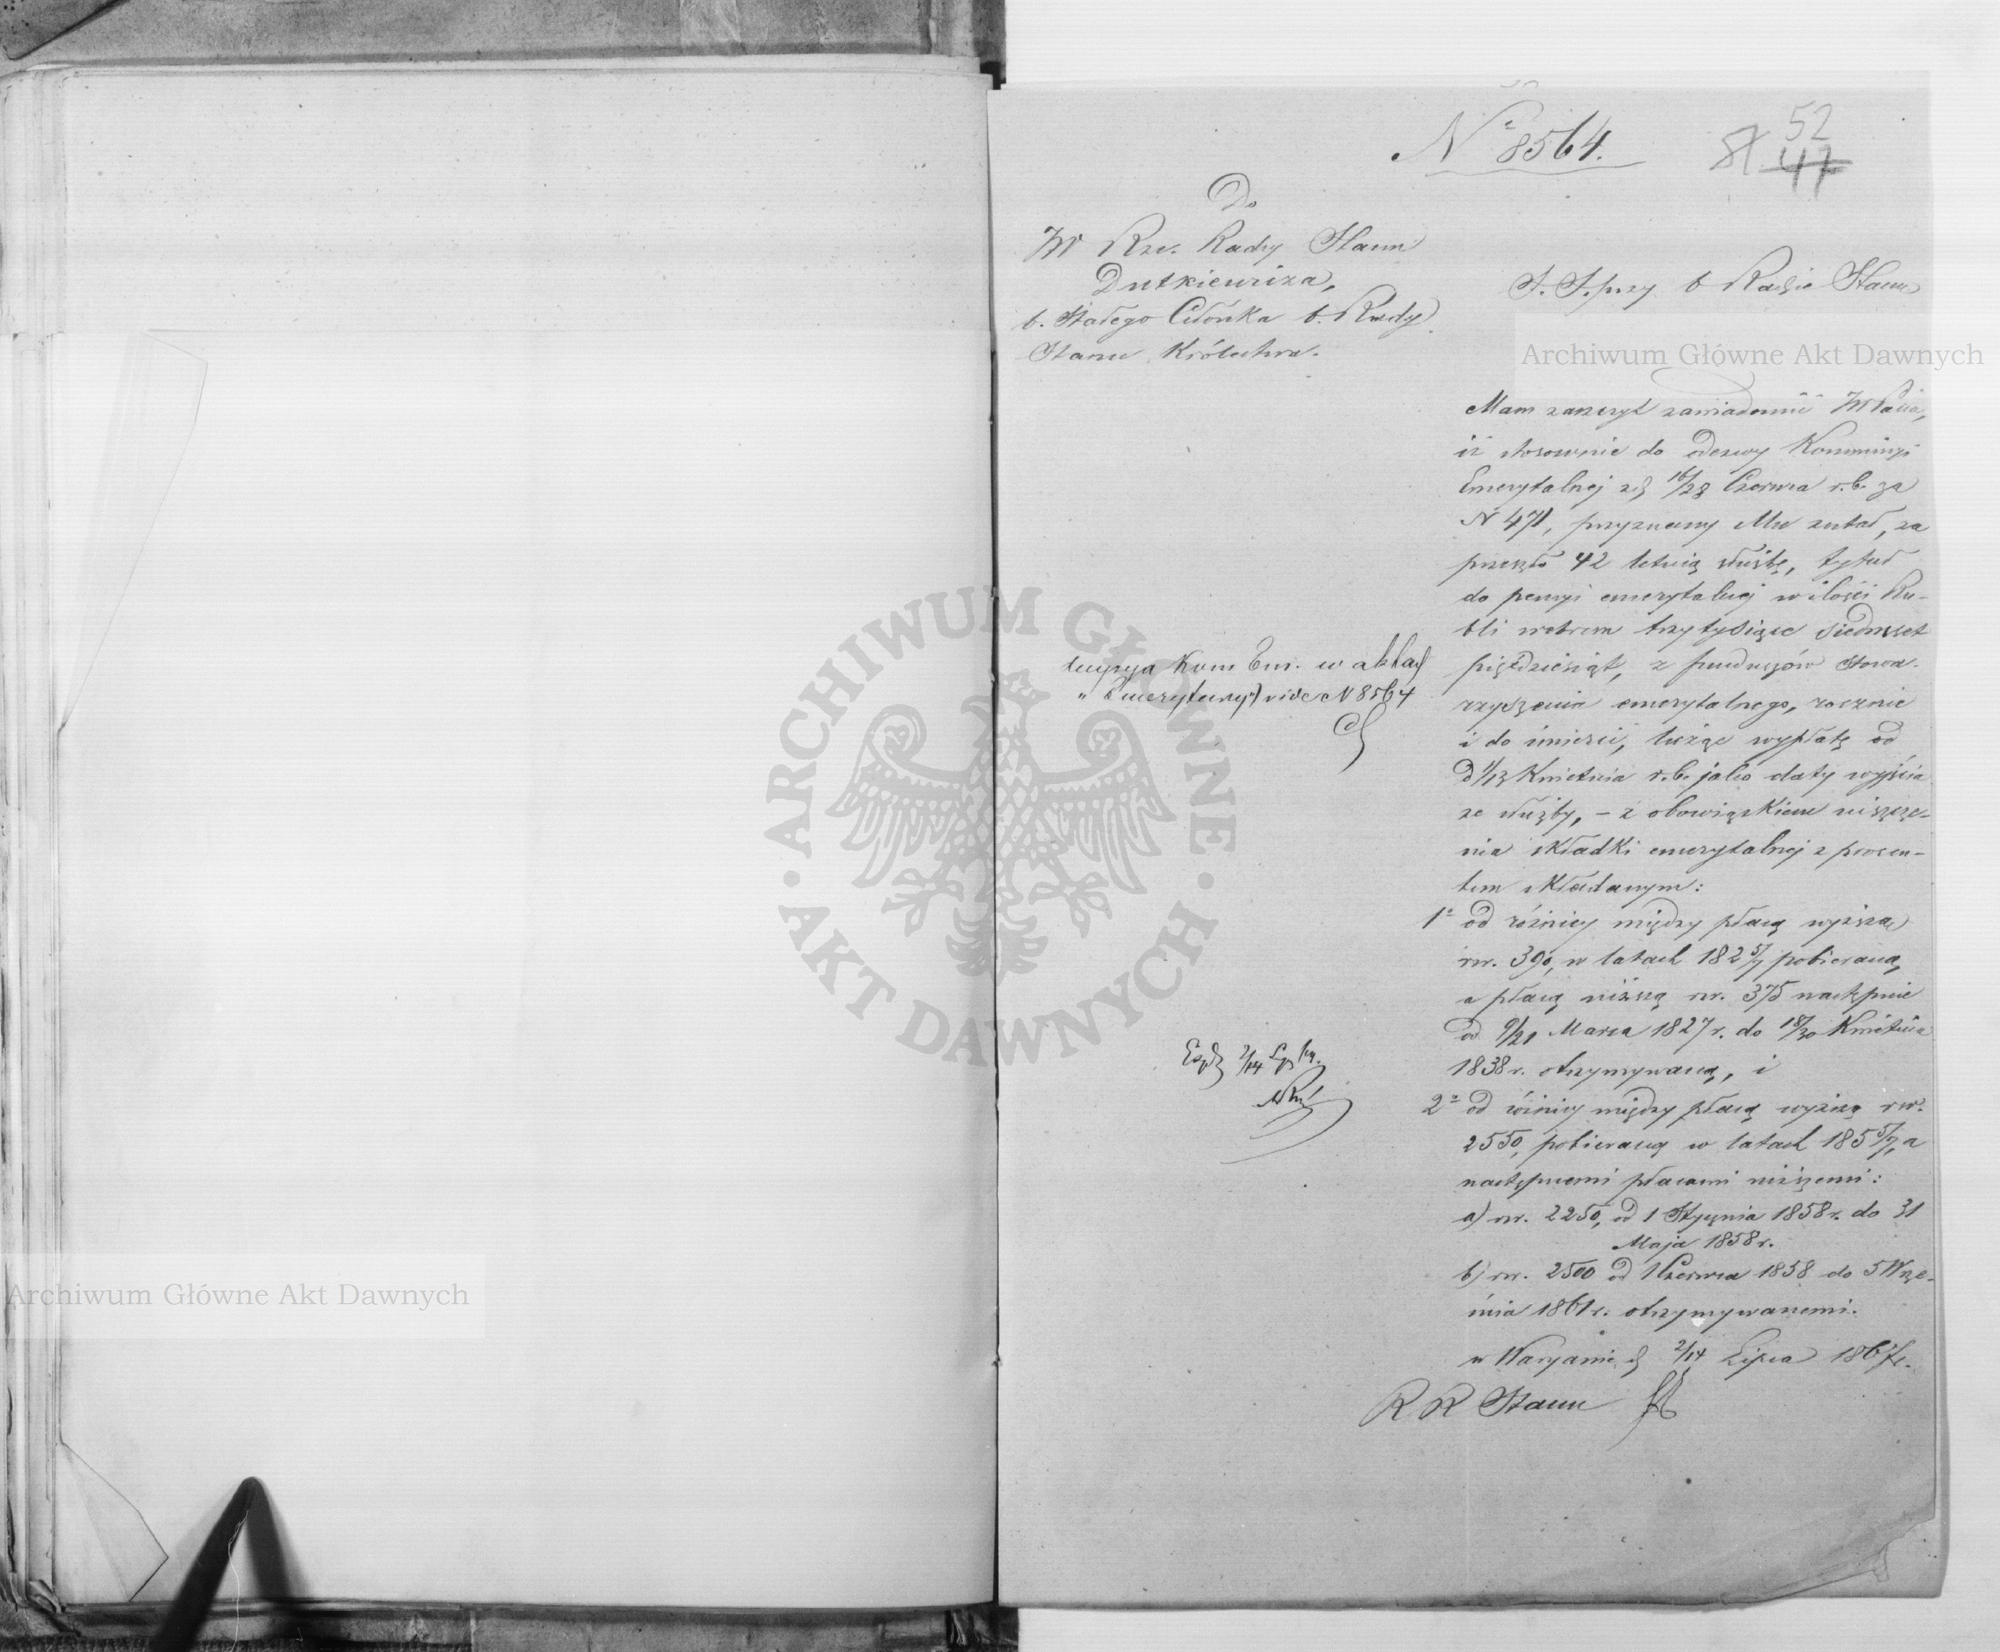 № 8564.
52
47
Do
JW Rzw. Radcy Stanu
Dutkiewicza,
b. Stałego Członka b. Rady
Stanu Królestwa.
S. S. przy b Radzie Stanu
Archiwum Główne Akt Dawnych
Mam zaszczyt zawiadomić JW Pana,
iż stosownie do odezwy Kommissyi
Emerytalnej z d 16/28 Czerwca r.b. za
N 471, przyznany Mu został, za
przeszło 42 letnią służbę, tytuł
do pensyi emerytalnej w ilości Ru-
bli srebrem trzy tysiące siedmset
pięćdziesiąt, z funduszów Stowa-
rzyszenia emerytalnego, rocznie
i do śmierci, licząc wypłatę od
d 1/13 Kwietnia r.b. jako daty wyjścia
ze służby, – z obowiązkiem uiszcze-
nia składki emerytalnej z procen-
tem składanym:
1° od różnicy między płacą wyższą
rsr. 390, w latach 1825/7 pobieraną,
a płacą niższą rsr. 375 następnie
od 9/21 Marca 1827 r. do 18/30 Kwietnia
1838 r. otrzymywaną, i
2° od różnicy między płacą wyższą rsr.
2550, pobieraną w latach 1855/7, a
następnemi płacami niższemi:
a) rsr. 2250, od 1 Stycznia 1858 r. do 31
Maja 1858 r.
b) rsr. 2500 od 1 Czerwca 1858 do 5 Wrze-
śnia 1861 r. otrzymywanemi.
w Warszawie d 2/14 Lipca 1867 r.
R R Stanu
Kom Em. w aktach
"Emerytury" vide N 8564
2/14
ARCHIWUM GŁÓWNE
AKT DAWNYCH
Archiwum Główne Akt Dawnych